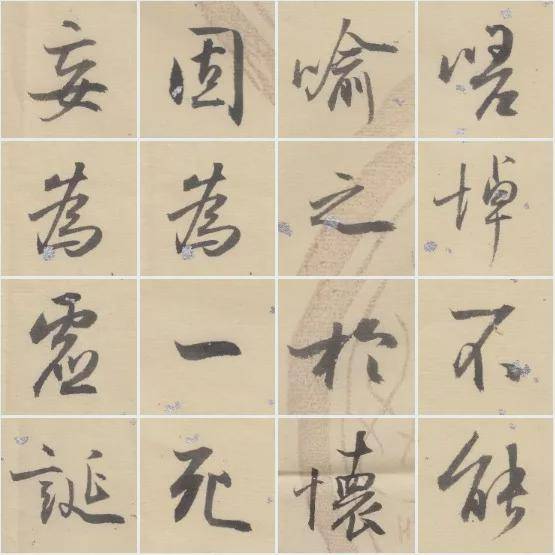 嗟悼不能
喻之於懷
固為一死
妄為虛誕